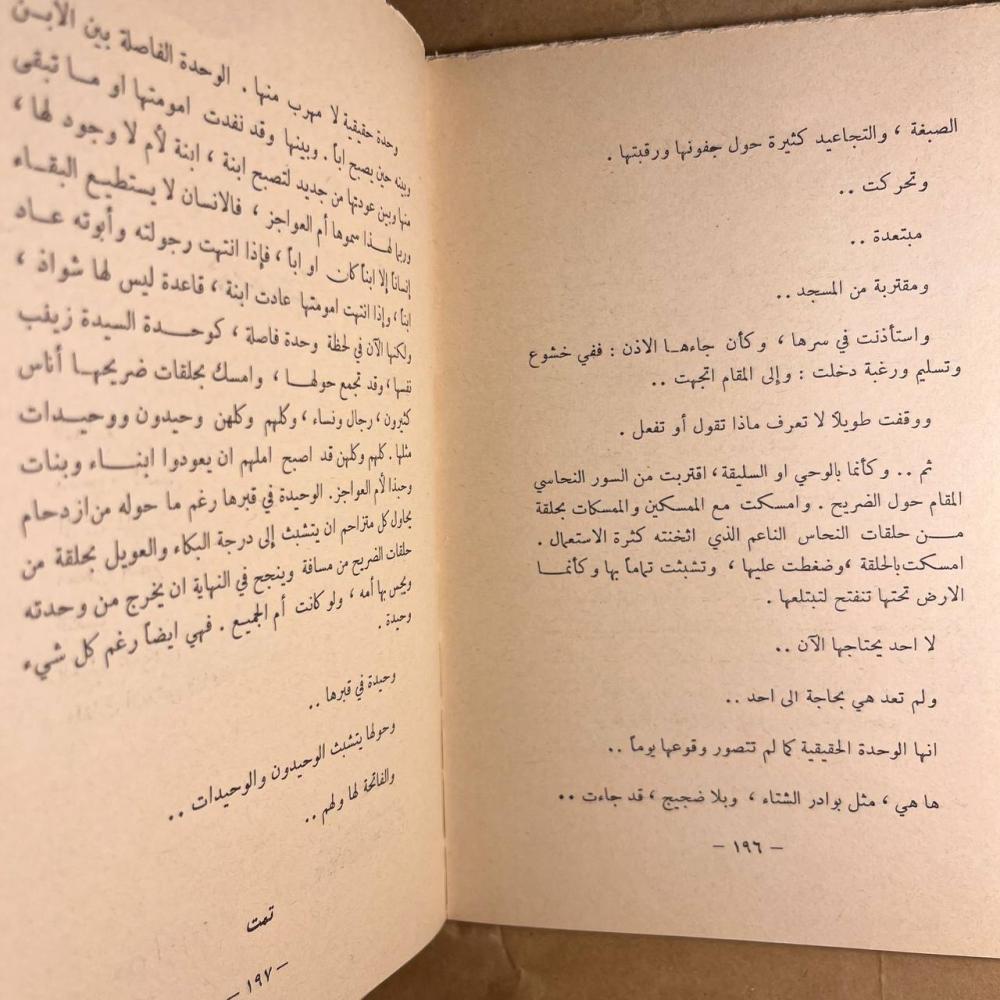 الصبغة ، والتجاعيد كثيرة حول جفونها ورقبتها .
وتحركت ..
مبتعدة ..
ومقتربة من المسجد ..
واستأذنت في سرها ، وكأن جاءهـا الاذن : ففي خشوع
وتسليم ورغبة دخلت : وإلى المقام اتجهت ..
ووقفت طويلا لا تعرف ماذا تقول أو تفعل .
ثم .. وكأنما بالوحي او السليقة ، اقتربت من السور النحاسي
المقام حول الضريح . وامسكت مع الممسكين والممسكات بحلقة
مـــن حلقات النحاس الناعم الذي اثخنته كثرة الاستعمال .
امسكت بالحلقة ، وضغطت عليها ، وتشبثت تماماً بها وكأنمـــا
الارض تحتها تنفتح لتبتلعها .
لا احد يحتاجها الآن ..
ولم تعد هي بحاجة الى احد ..
انها الوحدة الحقيقية كما لم تتصور وقوعها يوماً ..
ها هي ، مثل بوادر الشتاء ، وبلا ضجيج ، قد جاءت ..
– ١٩٦ –
وحدة حقيقية لا مهرب منها . الوحدة الفاصلة بين الابـن
وبينه حين يصبح اباً . وبينها وقد نفدت امومتها او مـا تبقى
منها وبين عودتها من جديد لتصبح ابنة ، ابنة لأم لا وجود لها ،
وربما لهـذا سموها أم العواجز ، فالانسان لا يستطيـع البقـاء
إنساناً إلا ابناً كان او اباً ، فإذا انتهت رجولته وأبوته عـاد
ابناً ، وإذا انتهت امومتها عادت ابنة ، قاعدة ليس لها شواذ ،
ولكنها الآن في لحظة وحدة فاصلة ، كوحـدة السيدة زينب
نفسها ، وقد تجمع حولهـا ، وامسك بحلقات ضريحهـا أناس
كثيرون ، رجال ونساء ، وكلهم وكلهن وحيدون ووحيـدات
مثلها . كلهم وكلهن قد اصبح املهم ان يعودوا ابنـاء وبنات
وحبذا لأم العواجز . الوحيدة في قبرها رغم ما حوله من ازدحام
يحاول كل متزاحم ان يتشبث إلى درجة البكاء والعويل بحلقة من
حلقات الضريح من مسافة وينجح في النهاية ان يخرج من وحدته
ويحس بها أمه ، ولو كانت أم الجميع . فهي ايضاً رغم كل شيء
وحيدة .
وحيدة في قبرها ..
وحولها يتشبث الوحيدون والوحيدات ..
والفاتحة لها ولهم ..
تمت
– ١٩٧ –